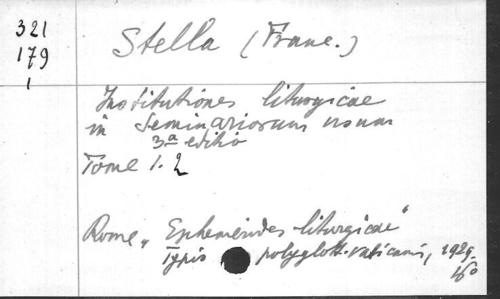 321
179
1
Stella (Franc.)
Institutiones liturgicae
in Seminariorum usum
3a editio
Tome 1. 2
Rome, "Ephemerides liturgicae"
Typis polyglott. vaticanis, 1929.